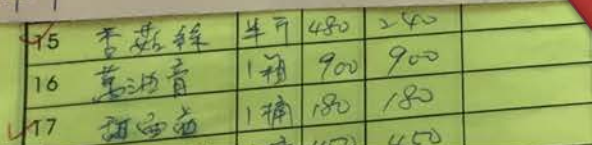 15 香菇絲 半斤 480 240
16 萬油膏 1箱 900 900
17 甜西瓜 1桶 180 180
450